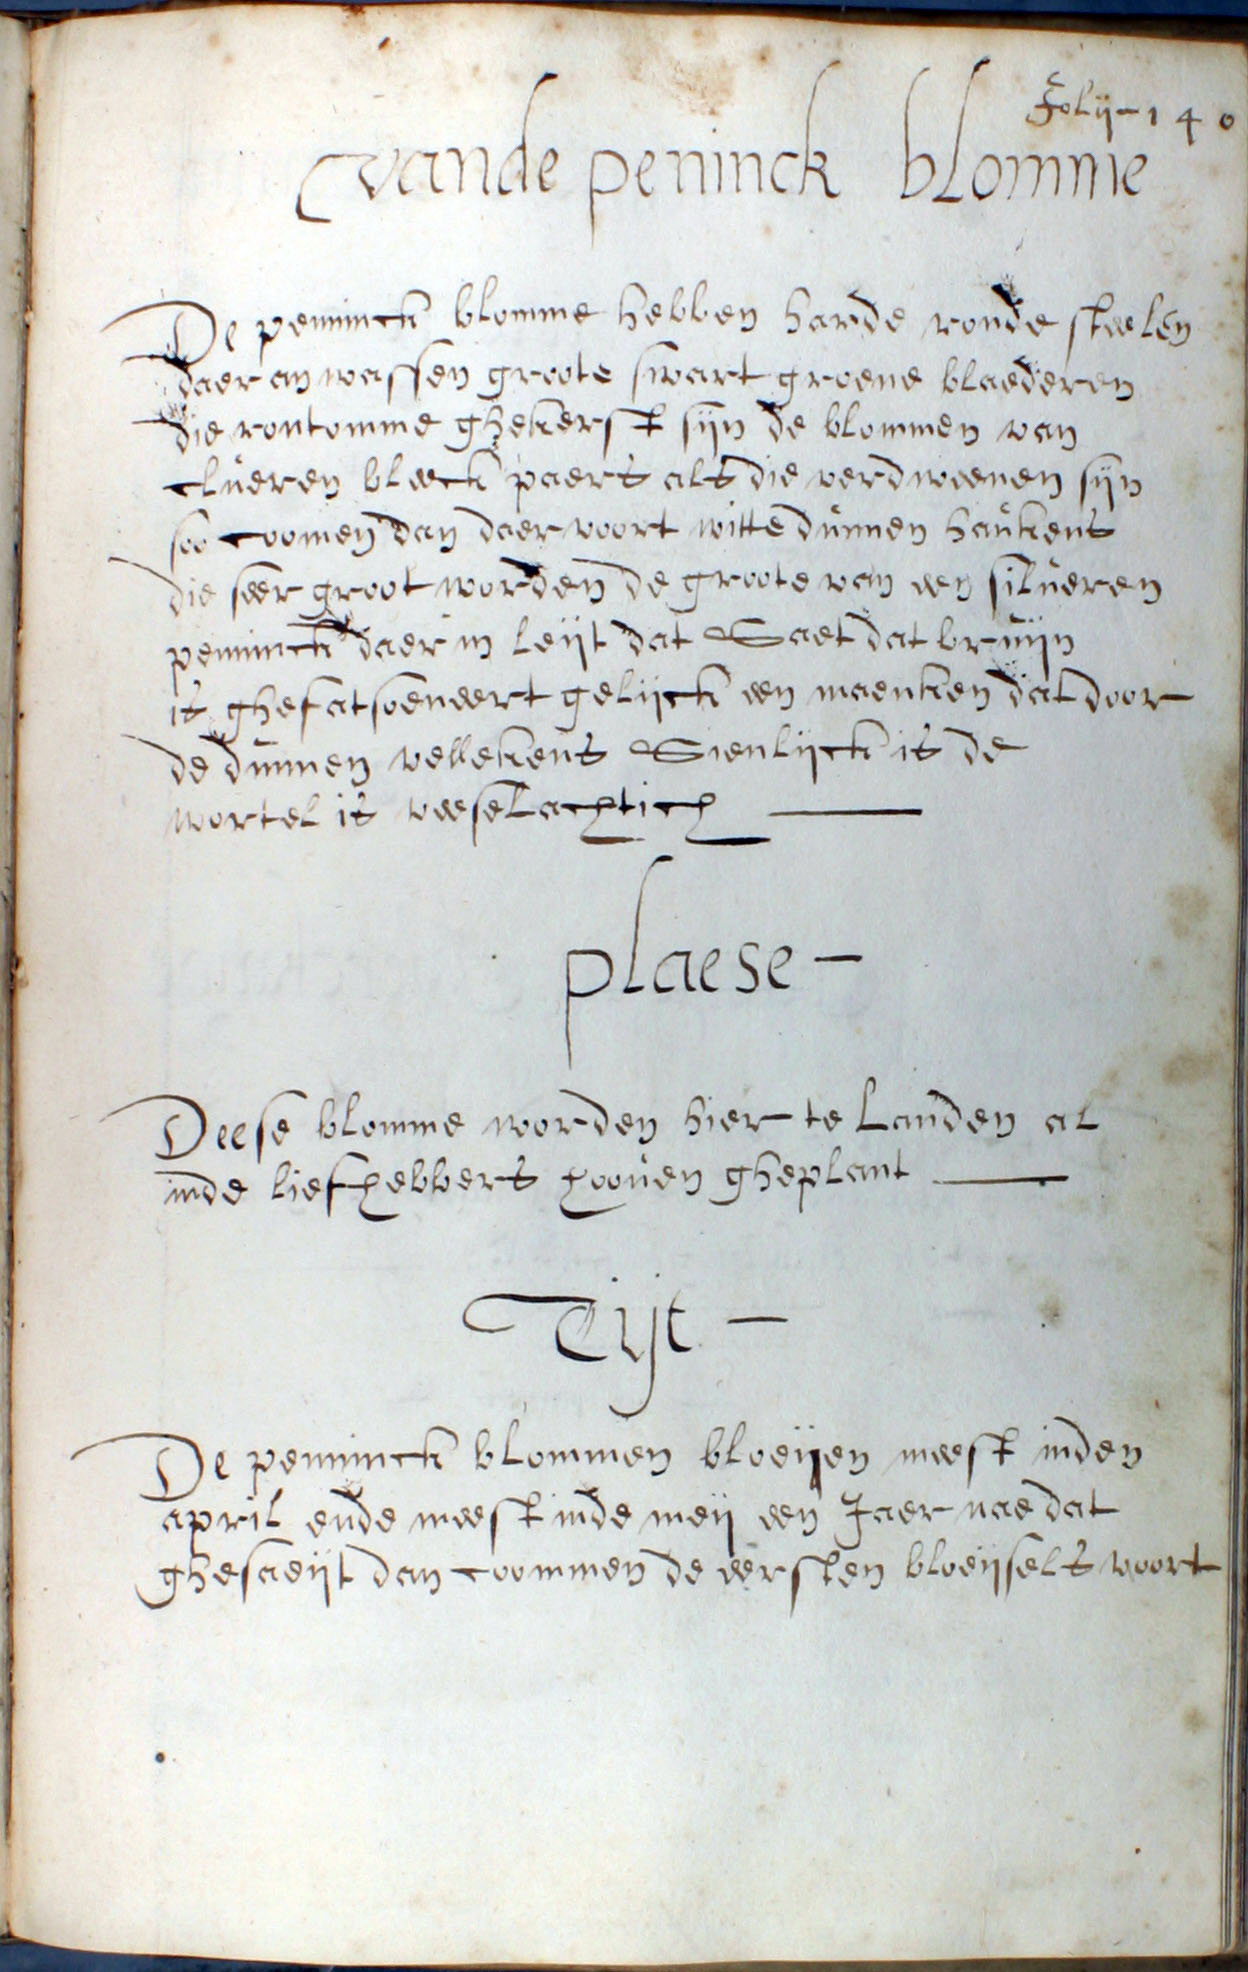 Folij - 140
vande peninck blomme
De penninck blomme hebben harde ronde steelen
daer an wassen groote swart groene blaederen
die rontomme ghekerst sijn de blommen van
clueren bleeck paers als die verdweenen sijn
soo coomen dan daer voort witte dunnen haukens
die seer groot worden de groote van een silveren
penninck daer in leijt dat Saet dat bruijn
is ghefatsoeneert gelijck een maenken dat door
de dunnen vellekens Sienlijck is de
wortel is veeselachtich
plaese -
Deese blomme worden hier te Landen al
inde liefhebbers hooven gheplant
Tijt -
De penninck blommen bloeijen meest inden
april ende meest inde meij een Jaer nae dat
ghesaeijt dan coommen de eersten bloeijsels voort